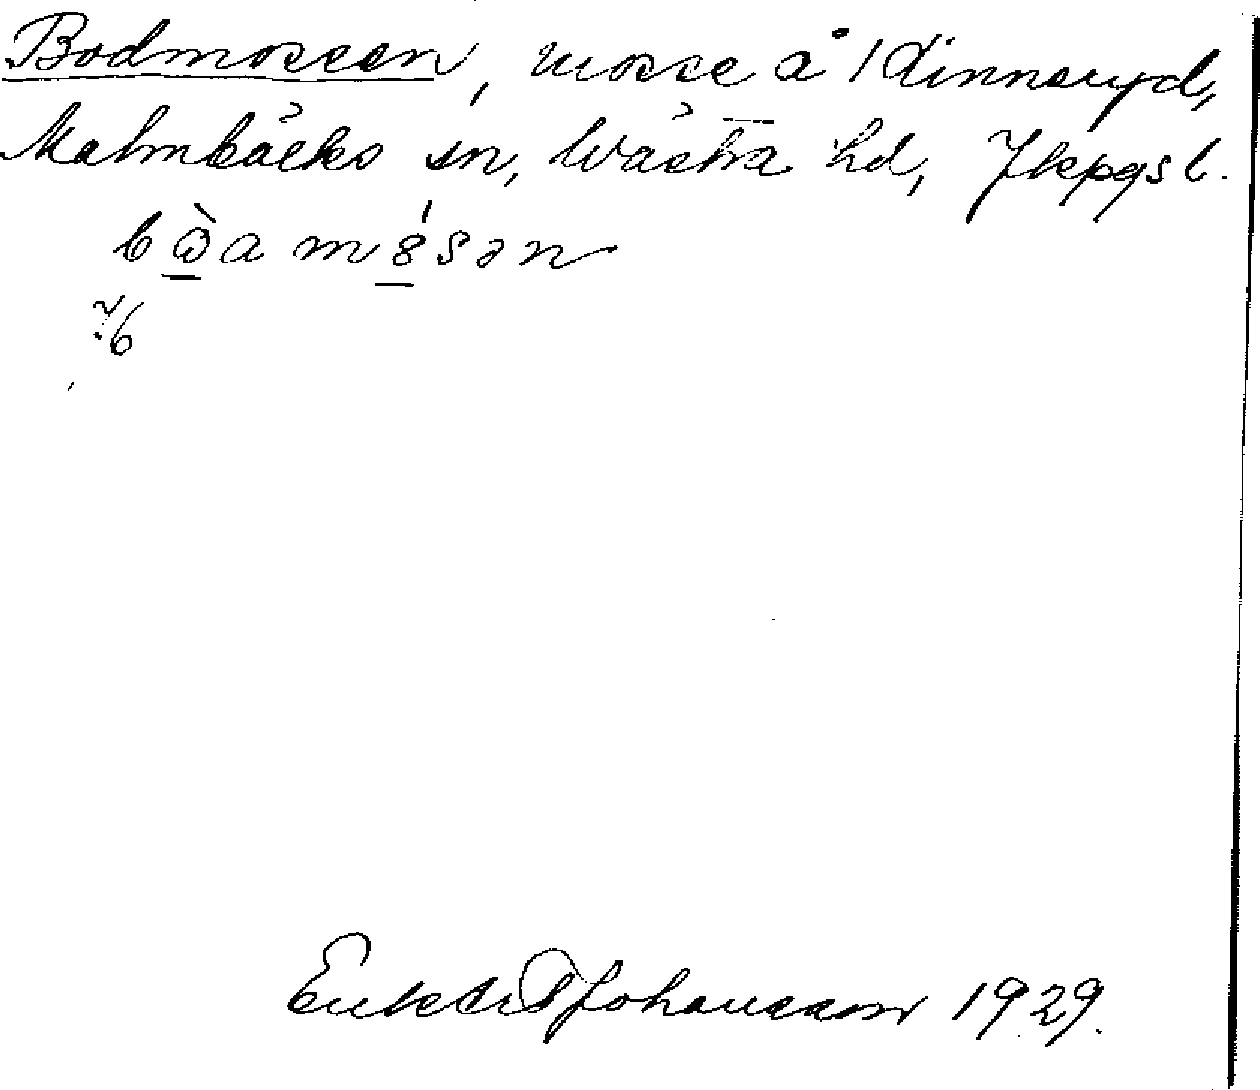 Bodmossen, mosse å Kinneryd,
Malmbäcks sn, Västra hd, Jkpgs l.
bɷ̀a mɵ́sən
2/6
Johansson 1929.